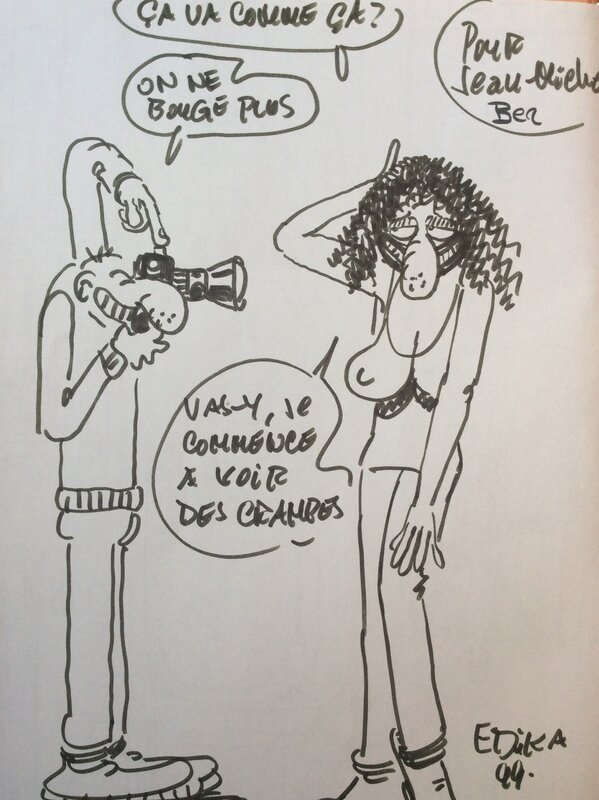 ÇA VA COMME ÇA?
POUR
Jean-Miche
Ber
ON NE
BOUGE PLUS
VAS-Y, JE
COMMENCE
A VOIR
DES CRAMPES
EDIKA
99.